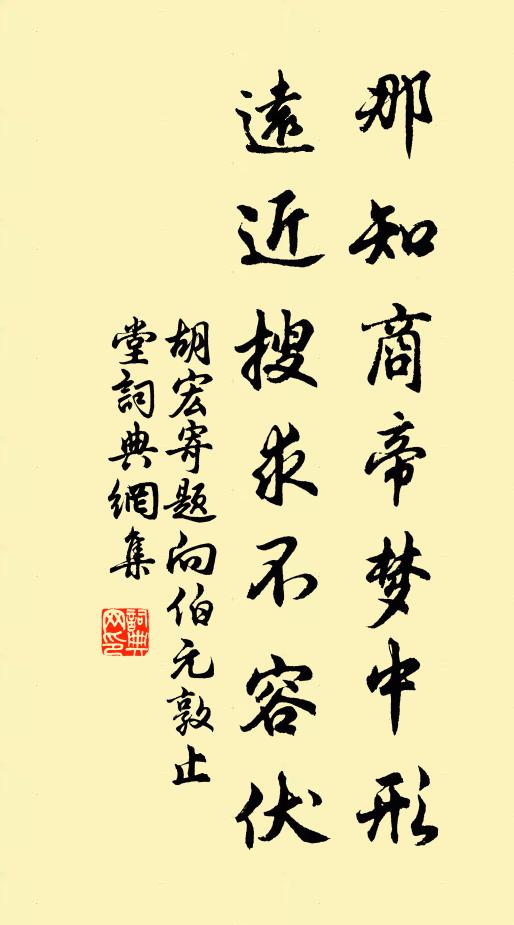 那知商帝梦中形
遠近搜求不容伏
胡宏寄题向伯元敦止
堂詞典網集
詞典
网印